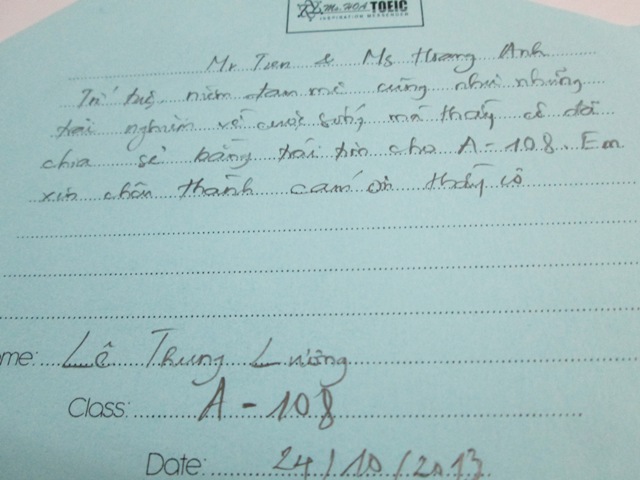 Ms. HOA TOEIC
INSPIRATION MESSENGER
Mr Tien & Ms Hoang Anh
Trí tuệ, niềm đam mê cũng như những
trải nghiệm về cuộc sống mà thầy cô đã
chia sẻ bằng trái tim cho A-108. Em
xin chân thành cảm ơn thầy cô
me: Lê Trung Lương
Class: A-108
Date: 24/10/2013